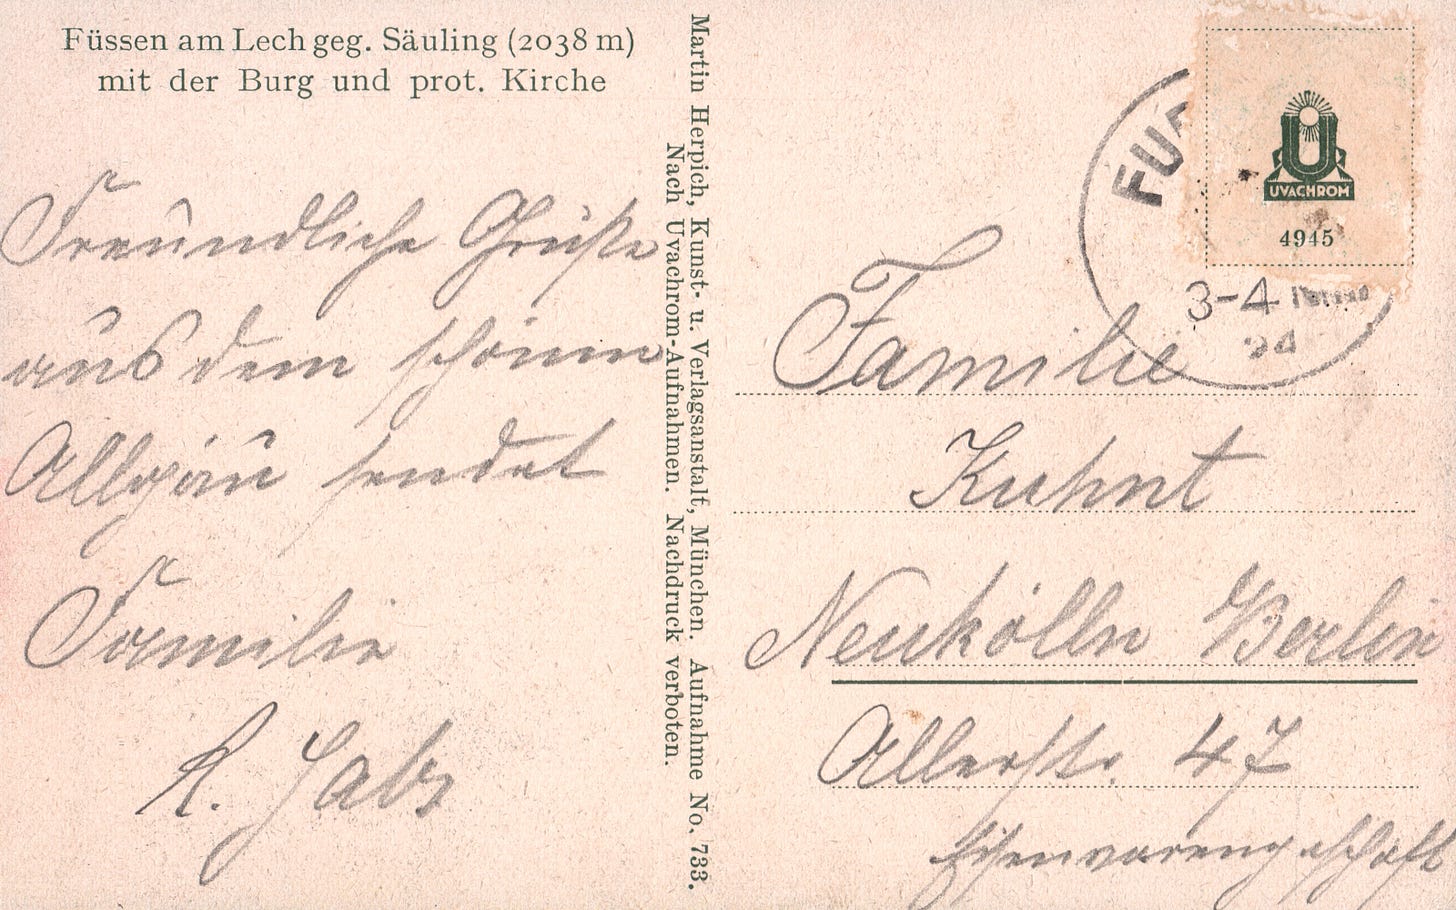 Füssen am Lech geg. Säuling (2038 m)
mit der Burg und prot. Kirche
Freundliche Grüße
aus dem schönen
Allgäu sendet
Familie
Martin Herpich, Kunst- u. Verlagsanstalt, München. Aufnahme No. 733.
Nach Uvachrom-Aufnahmen. Nachdruck verboten.
UVACHROM
4945
FÜ
3-4
Familie
Kuhnt
Neukölln Berlin
Allerstr. 47
Eisenwarengeschäft